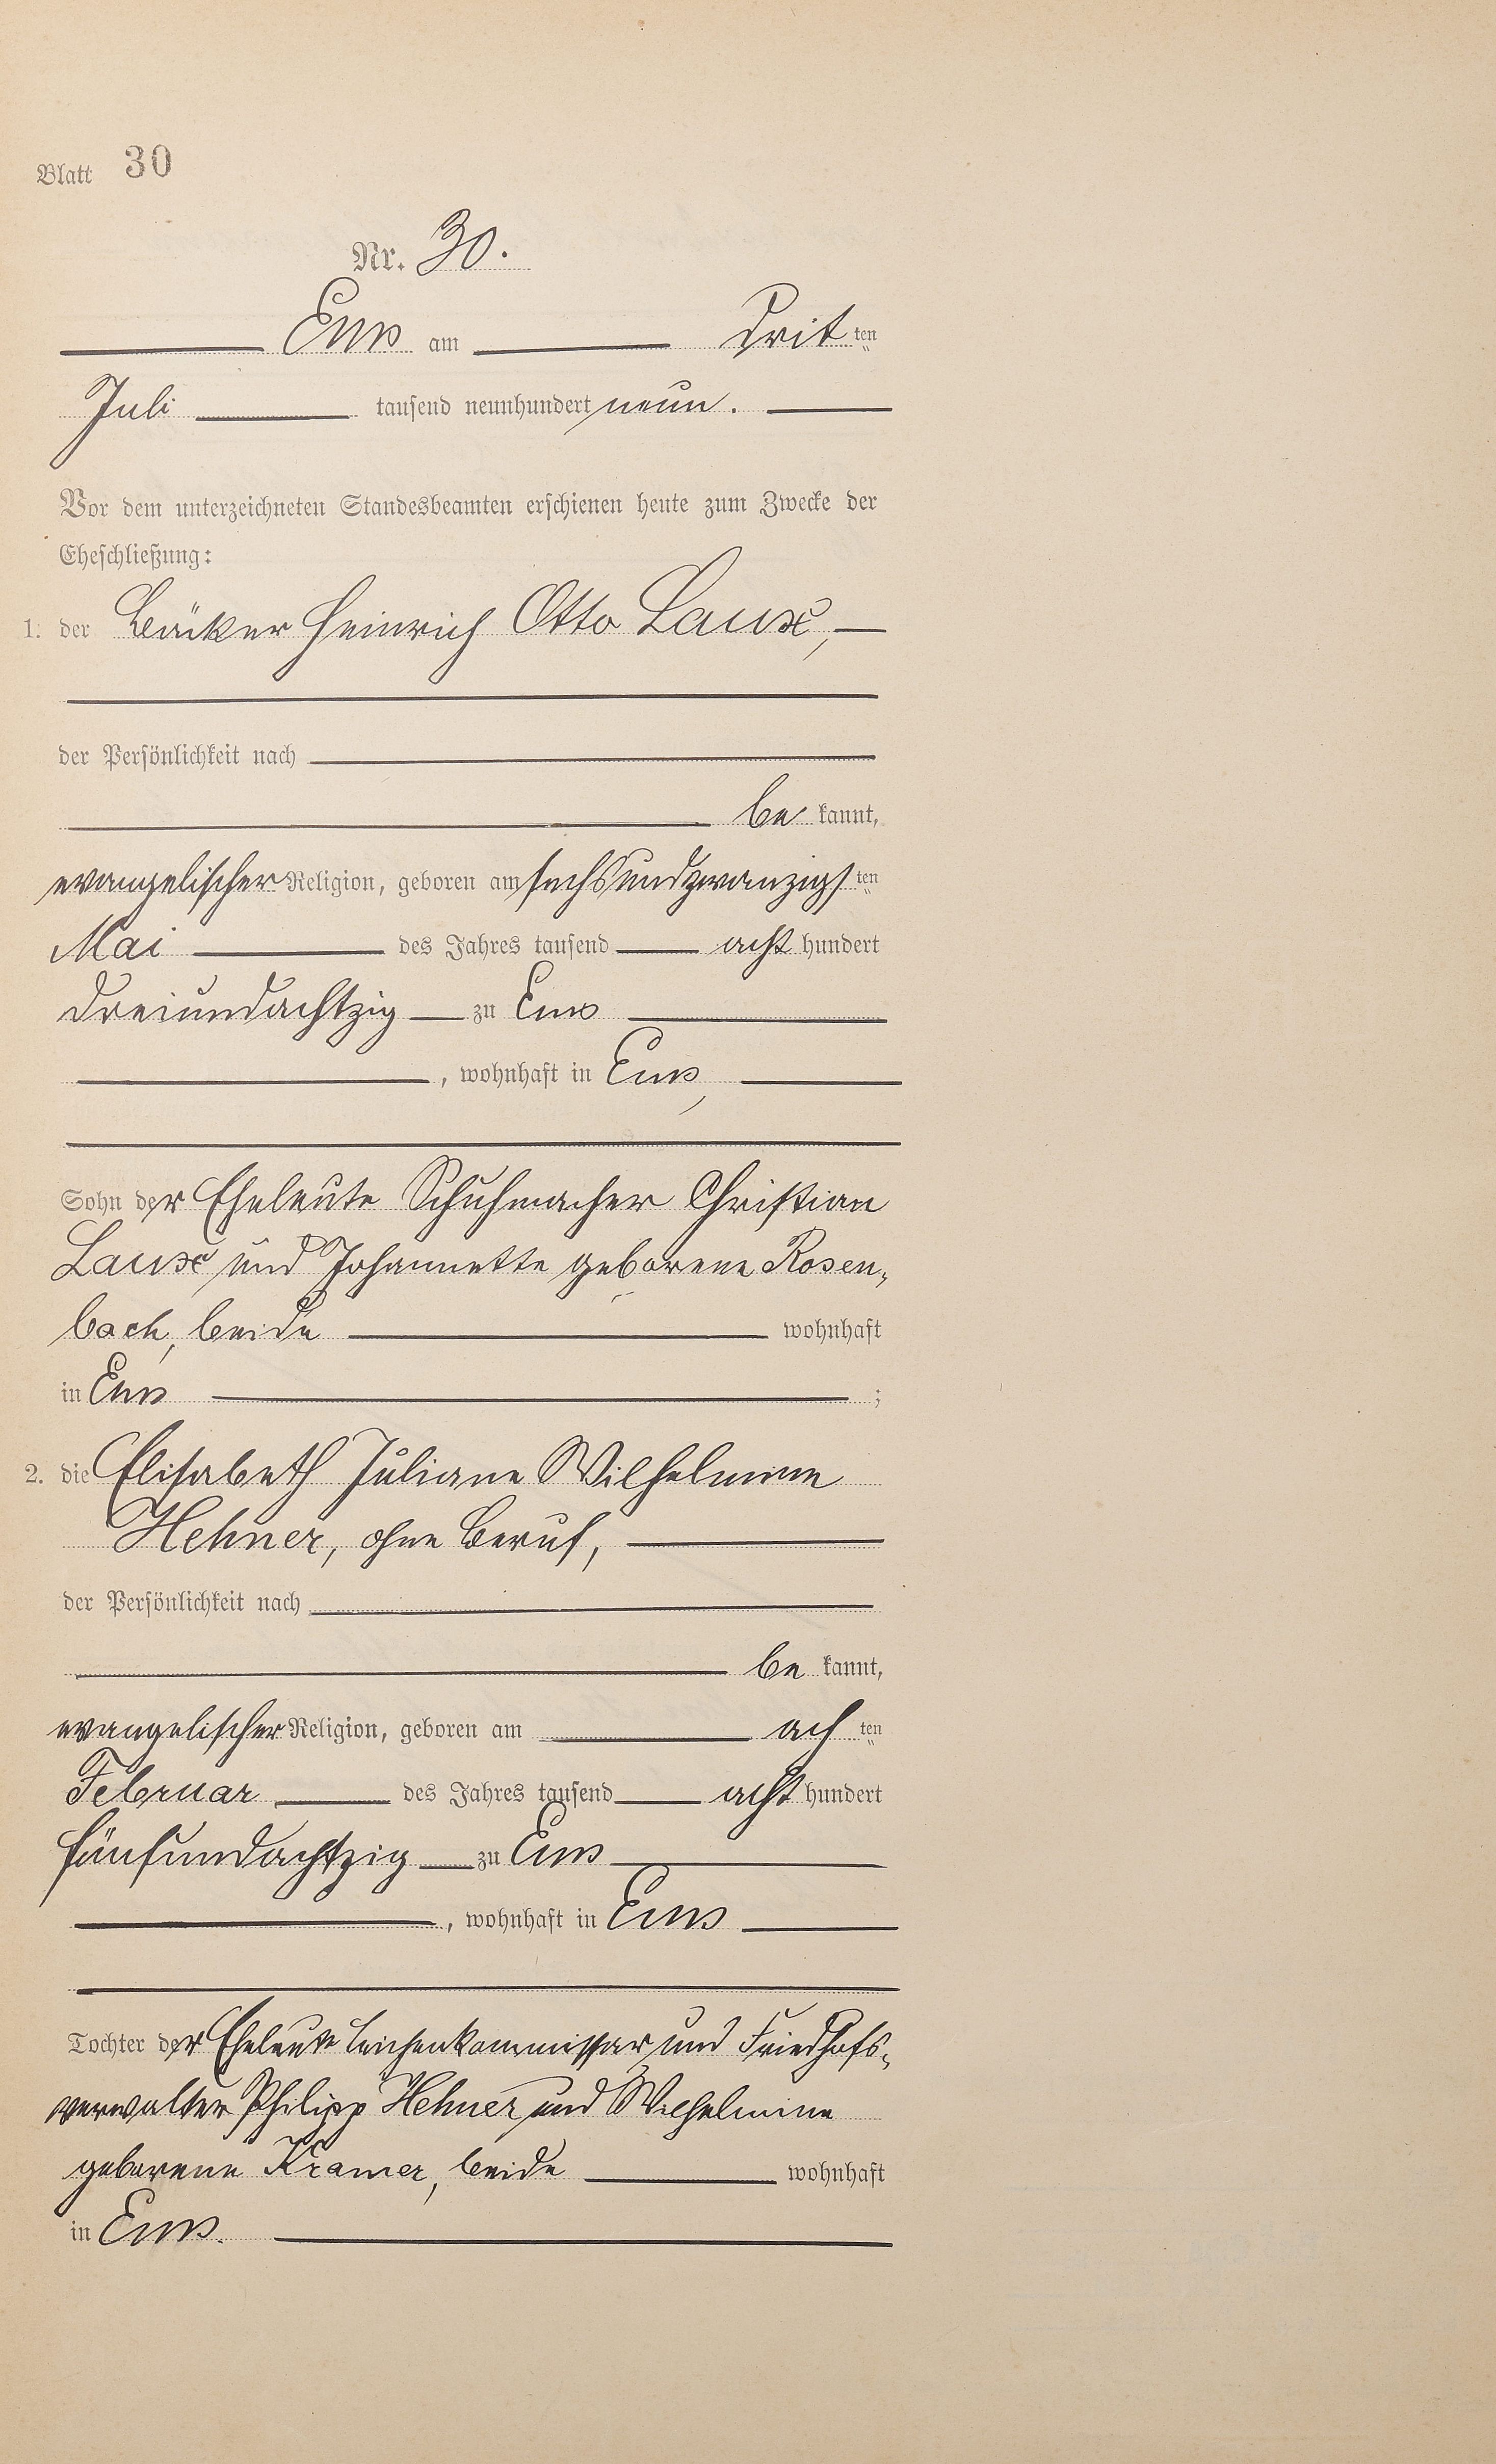 Blatt 30
Nr. 30.
Ems am Drit ten
Juli tausend neunhundert neun.
Vor dem unterzeichneten Standesbeamten erschienen heute zum Zwecke der
Eheschließung:
1. der Bäcker Heinrich Otto Laux,
der Persönlichkeit nach
be kannt,
evangelischer Religion, geboren am sechsundzwanzigs ten
Mai des Jahres tausend acht hundert
dreiundachtzig zu Ems
, wohnhaft in Ems,
Sohn der Eheleute Schuhmacher Christian
Laux und Johannette geborene Rosen-
bach, beide wohnhaft
in Ems ;
2. die Elisabeth Juliane Wilhelmine
Hehner, ohne Beruf,
der Persönlichkeit nach
be kannt,
evangelischer Religion, geboren am ach ten
Februar des Jahres tausend acht hundert
fünfundachtzig zu Ems
, wohnhaft in Ems
Tochter der Eheleute Leichenkommissar und Friedhofs-
verwalter Philipp Hehner und Wilhelmine
geborene Kramer, beide wohnhaft
in Ems.